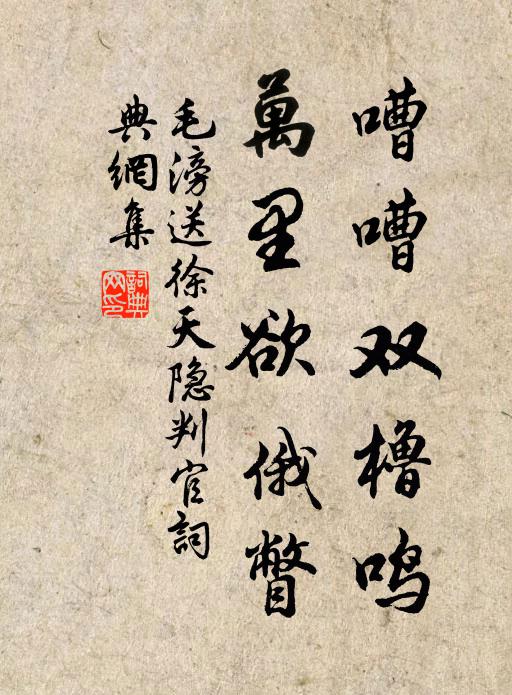 嘈嘈双橹鸣
萬里欲俄瞥
毛滂送徐天隐判官詞
典網集
詞典
网印